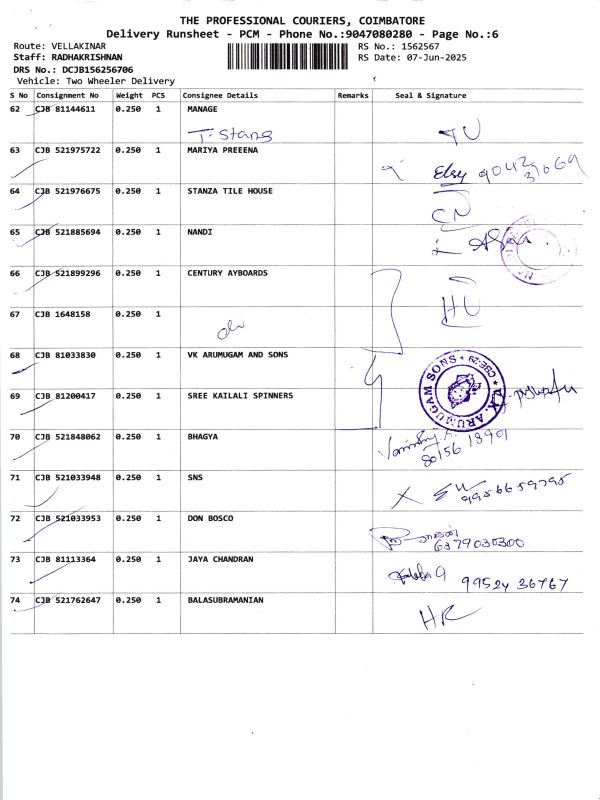 THE PROFESSIONAL COURIERS, COIMBATORE
Delivery Runsheet - PCM - Phone No.:9047080280 - Page No.:6
Route: VELLAKINAR RS No.: 1562567
Staff: RADHAKRISHNAN RS Date: 07-Jun-2025
DRS No.: DCJB156256706
Vehicle: Two Wheeler Delivery
S No Consignment No Weight PCS Consignee Details Remarks Seal & Signature
62 CJB 81144611 0.250 1 MANAGE
T. Stans
63 CJB 521975722 0.250 1 MARIYA PREEENA
Elsy 90423 31069
64 CJB 521976675 0.250 1 STANZA TILE HOUSE
CN
65 CJB 521885694 0.250 1 NANDI
66 CJB 521899296 0.250 1 CENTURY AYBOARDS
HU
67 CJB 1648158 0.250 1
68 CJB 81033830 0.250 1 VK ARUMUGAM AND SONS
V.K. ARUMUGAM SONS * CBE-29 *
69 CJB 81200417 0.250 1 SREE KAILALI SPINNERS
70 CJB 521848062 0.250 1 BHAGYA
80156 18901
71 CJB 521033948 0.250 1 SNS
9956659795
72 CJB 521033953 0.250 1 DON BOSCO
6379030300
73 CJB 81113364 0.250 1 JAYA CHANDRAN
99524 36767
74 CJB 521762647 0.250 1 BALASUBRAMANIAN
HR